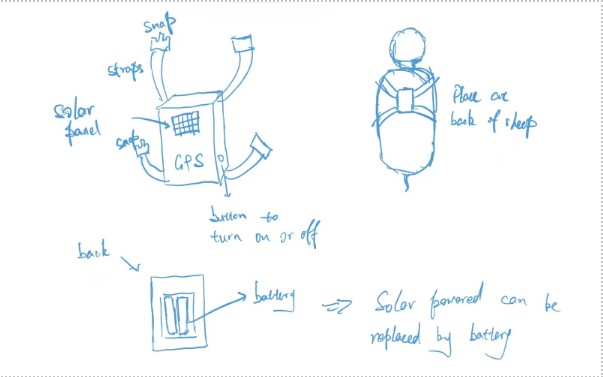 snap
straps
solar
panel
snap
GPS
button to
turn on or off
Place on
back of sheep
back
battery
Solar powered can be
replaced by battery